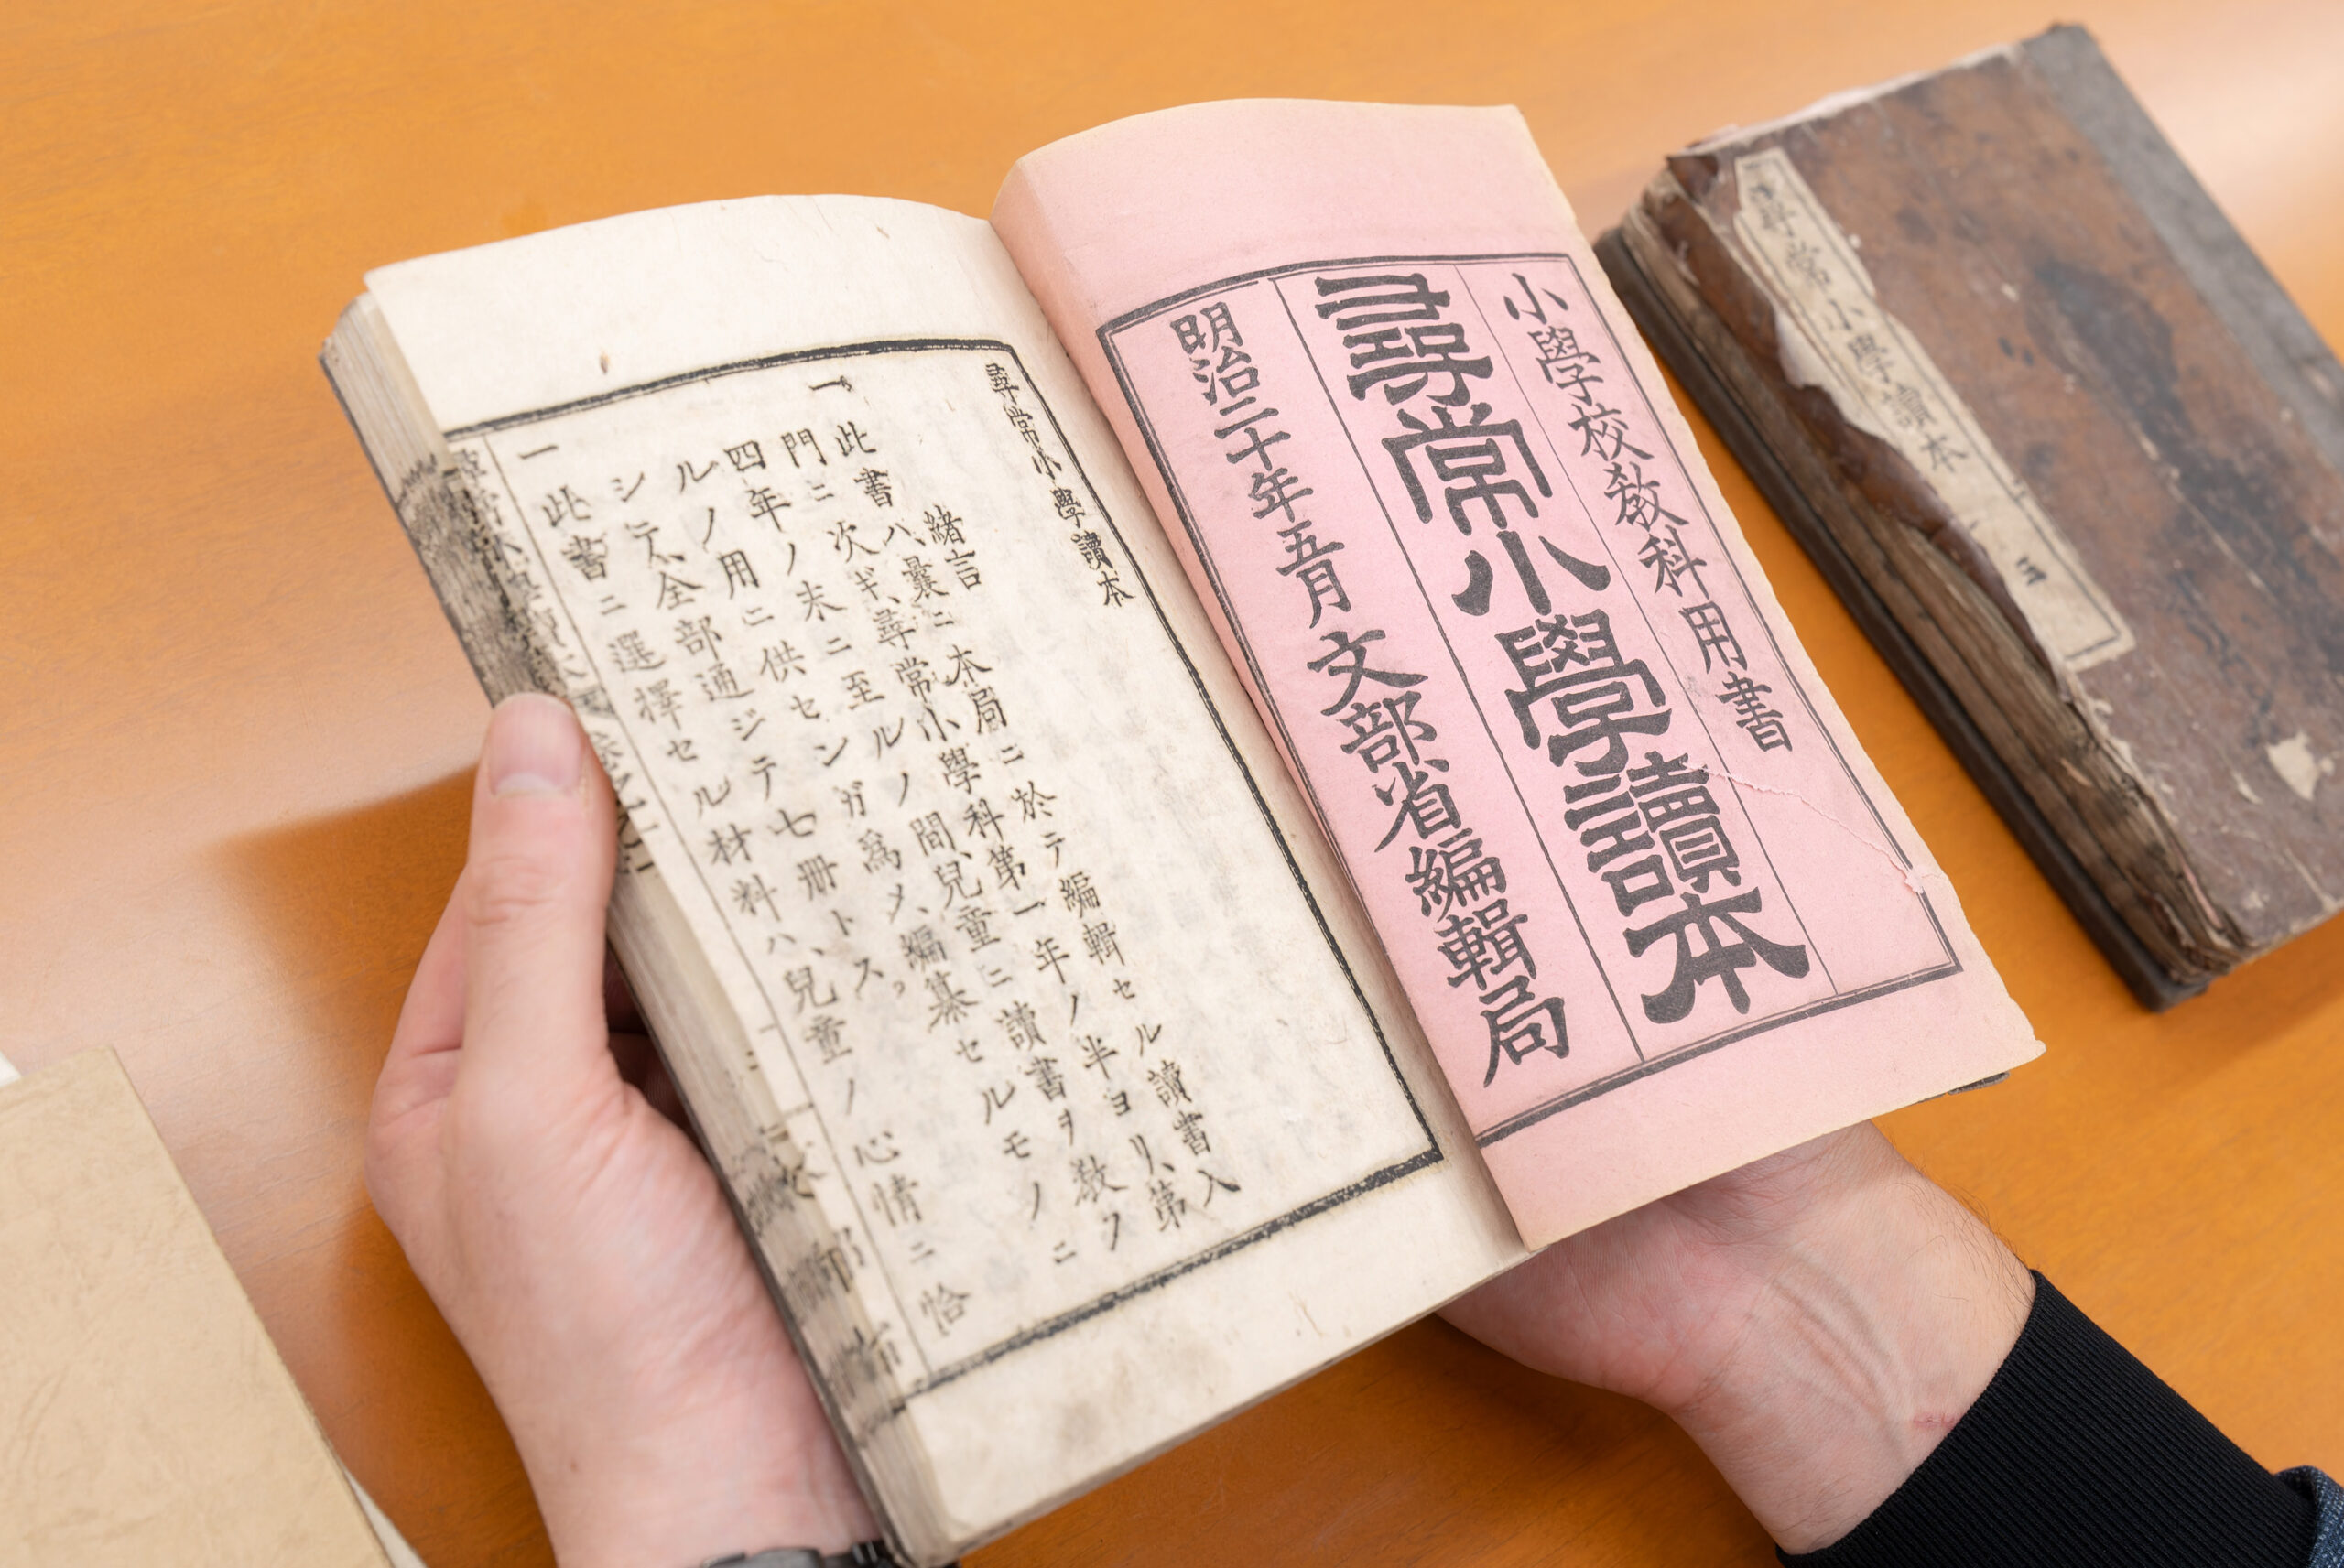 小學校教科用書
尋常小學讀本
明治二十年五月 文部省編輯局
尋常小學讀本
緒言
一、此書ハ、曩ニ本局ニ於テ編輯セル讀書入
門ニ次ギ、尋常小學科第一年ノ半ヨリ、第
四年ノ末ニ至ルノ間、兒童ニ讀書ヲ敎フ
ルノ用ニ供センガ爲メ、編纂セルモノニ
シテ、全部通ジテ七冊トス。
一 此書ニ選擇セル材料ハ、兒童ノ心情ニ恰
尋常小學讀本 五